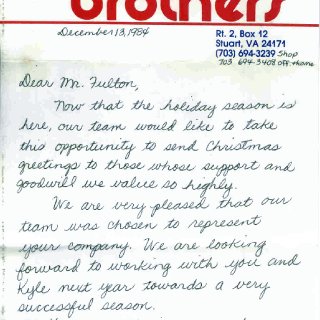 brothers
December 13, 1984
Rt. 2, Box 12
Stuart, VA 24171
(703) 694-3239 Shop
703 694-3408 Off. + home
Dear Mr. Fulton,
Now that the holiday season is
here, our team would like to take
this opportunity to send Christmas
greetings to those whose support and
goodwill we value so highly.
We are very pleased that our
team was chosen to represent
your company. We are looking
forward to working with you and
Kyle next year towards a very
successful season.